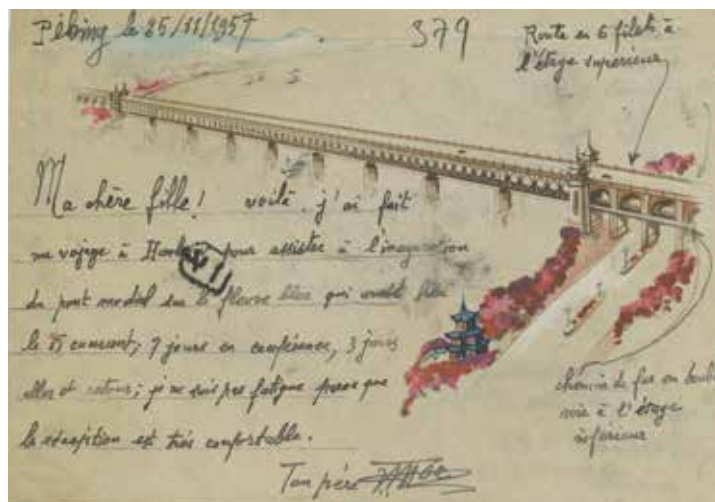 Péking le 25/11/1957
379
Route en 6 filets à
l'étage superieur
Ma chère fille! voilà, j'ai fait
un voyage à pour assister à l'inauguration
du pont modèl sur le fleuve bleu qui
le courant; 7 jours en conférence, 3 jours
aller et retour; je ne suis pas fatigué parce que
la réception est très confortable.
chemin de fer en double
voie à l'étage
inférieur
Ton père